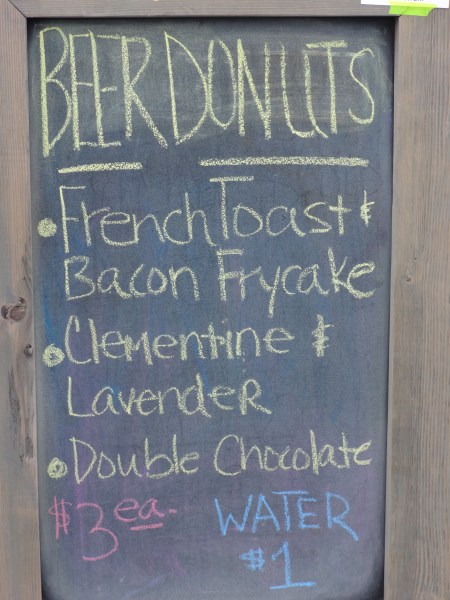 BEER DONUTS
• French Toast &
Bacon Frycake
• Clementine &
Lavender
• Double Chocolate
$3 ea. WATER
$1